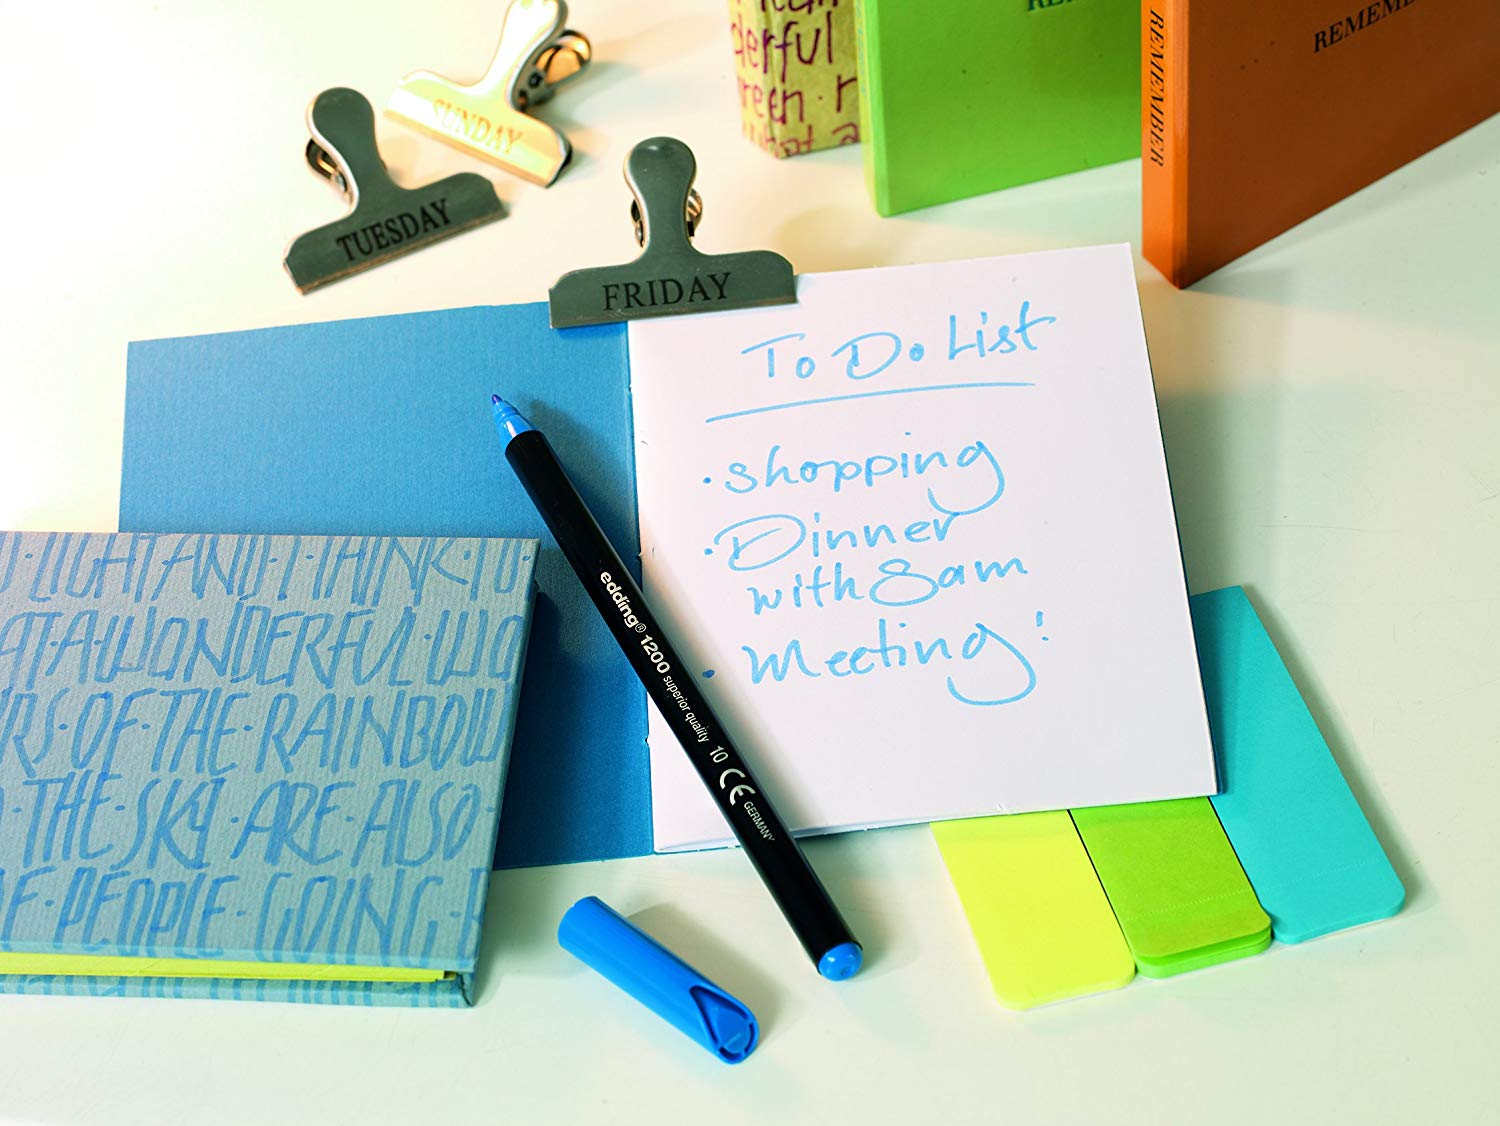 SUNDAY
TUESDAY
FRIDAY
REMEMBER
To Do List
• shopping
• Dinner
with Sam
• Meeting!
edding® 1200 superior quality 10 CE GERMANY
LIGHT AND I THINK TO
AT A WONDERFUL WO
RS OF THE RAINBOW
THE SKY ARE ALSO
PEOPLE GOING